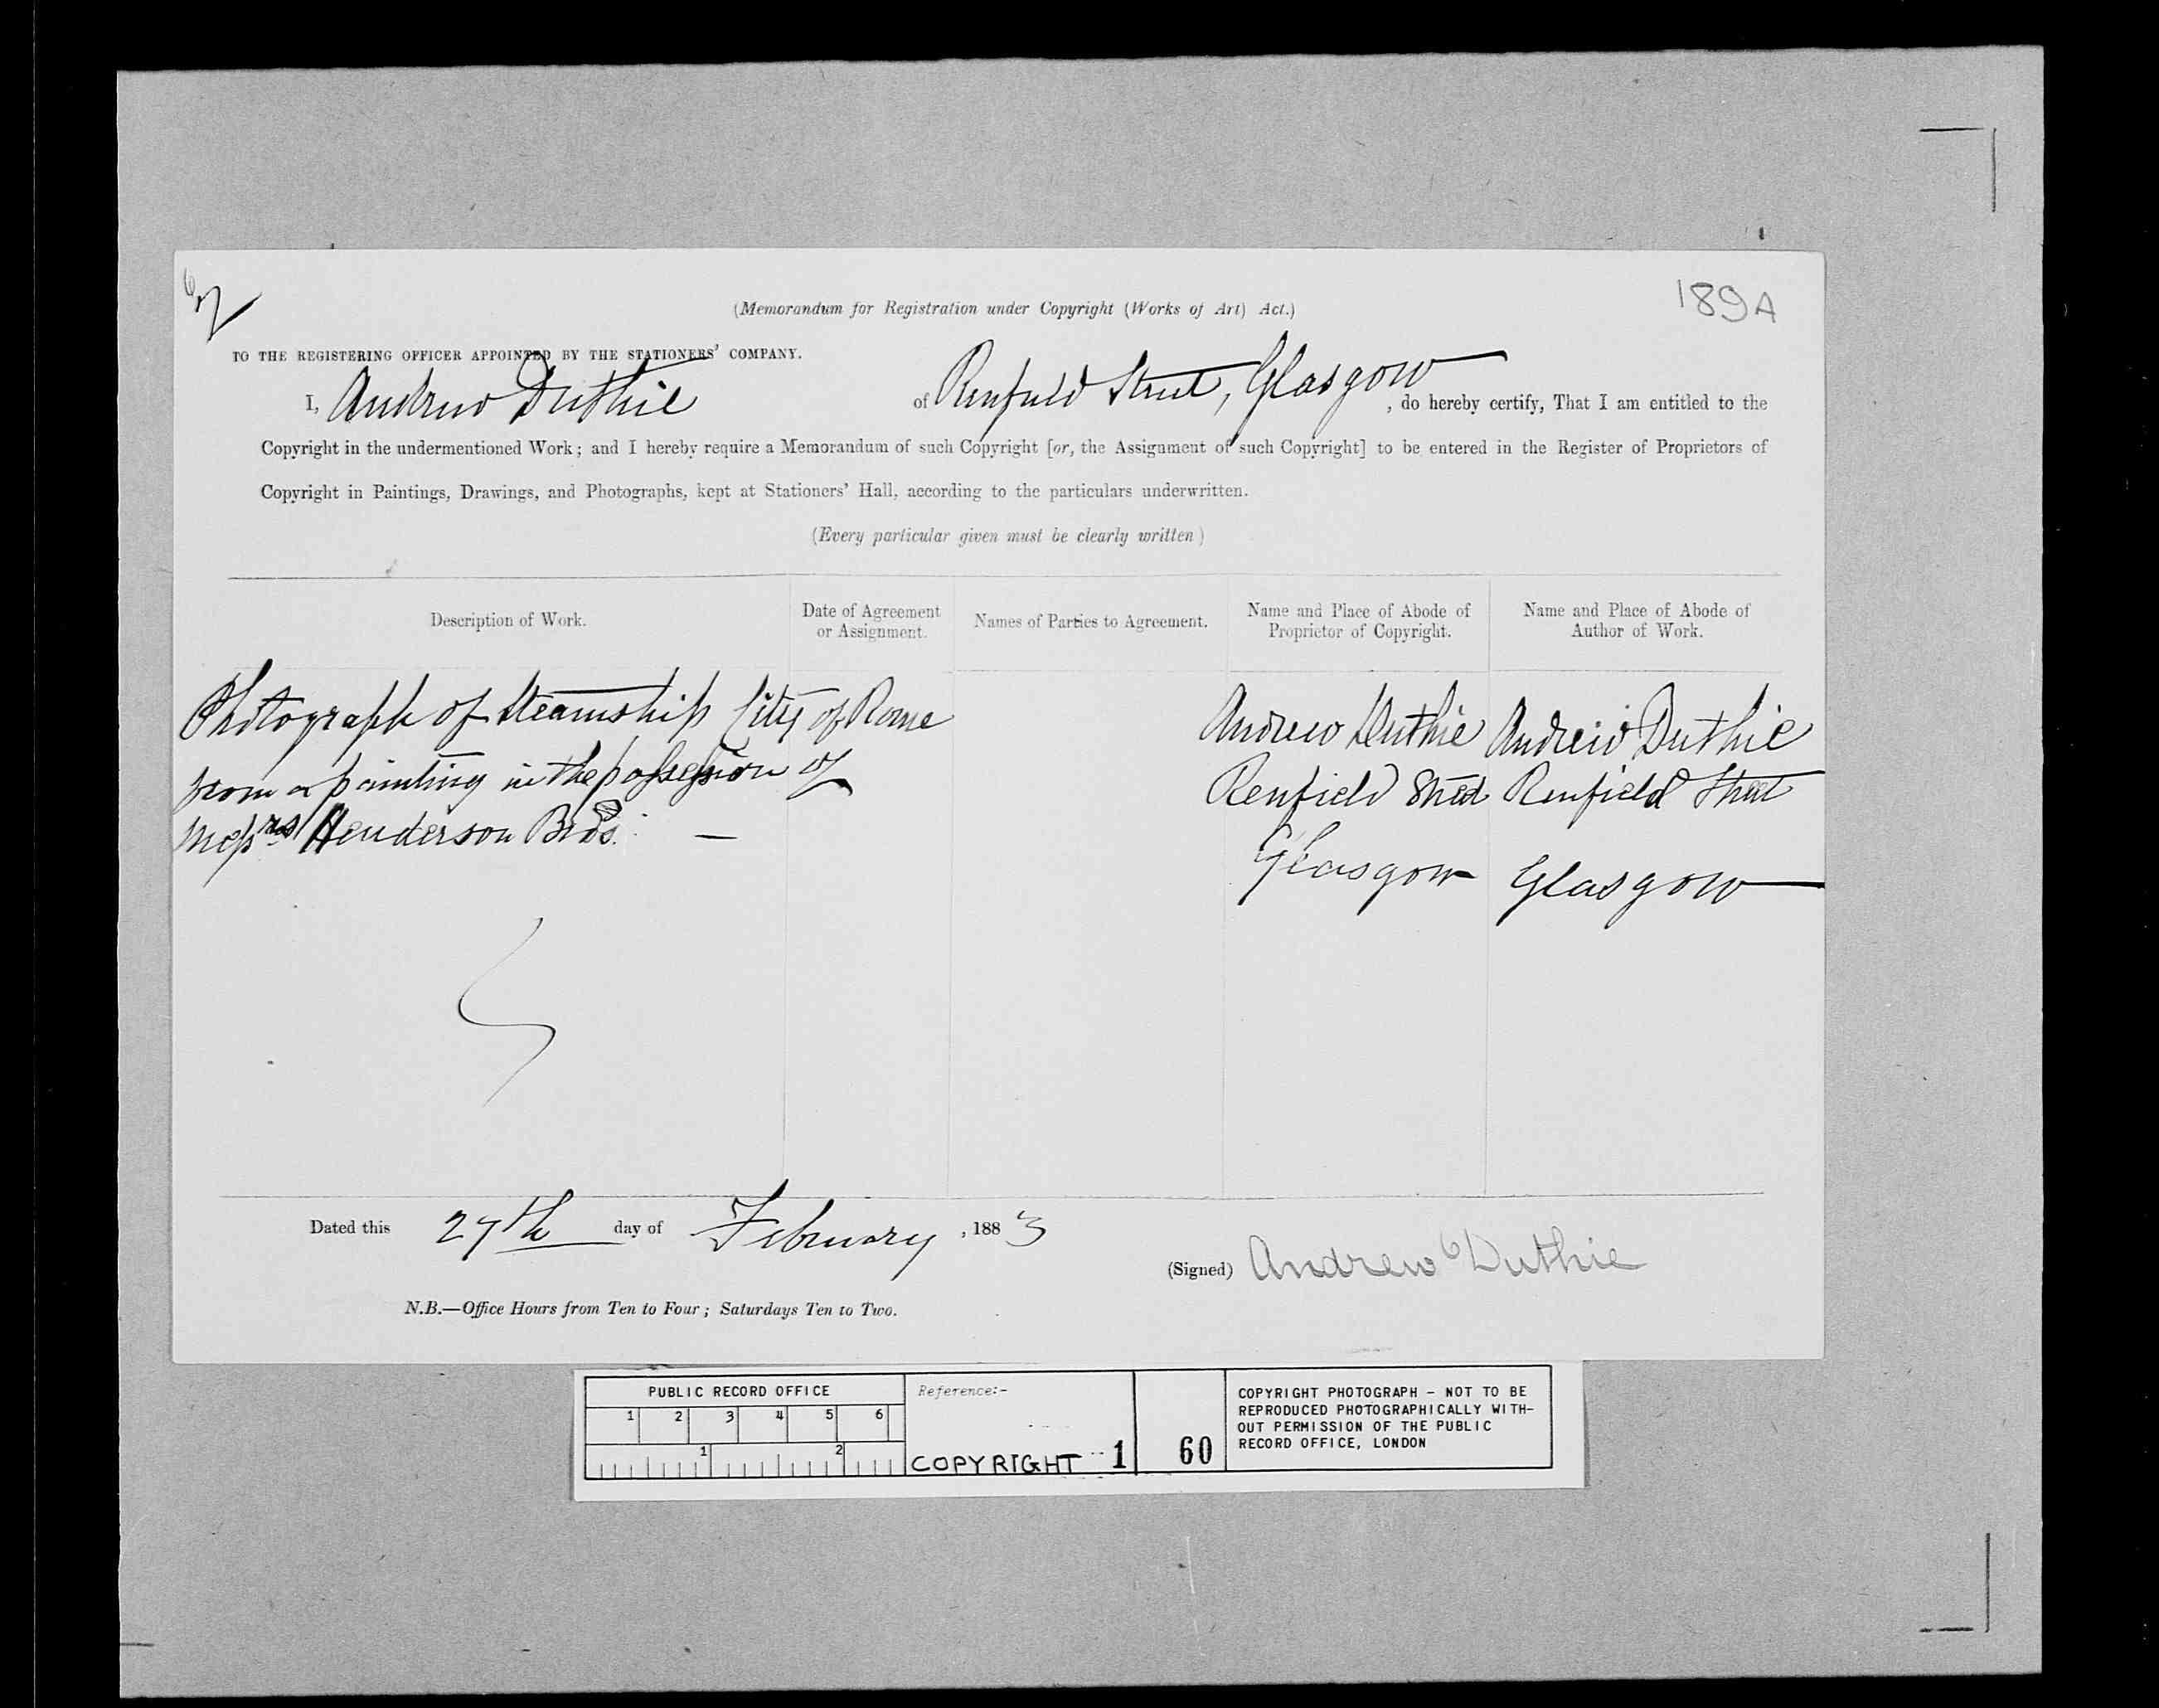 189A
(Memorandum for Registration under Copyright (Works of Art) Act.)
TO THE REGISTERING OFFICER APPOINTED BY THE STATIONERS' COMPANY.
I, Andrew Duthie of Renfield Street, Glasgow, do hereby certify, That I am entitled to the
Copyright in the undermentioned Work; and I hereby require a Memorandum of such Copyright [or, the Assignment of such Copyright] to be entered in the Register of Proprietors of
Copyright in Paintings, Drawings, and Photographs, kept at Stationers' Hall, according to the particulars underwritten.
(Every particular given must be clearly written)
Description of Work.
Date of Agreement
or Assignment.
Names of Parties to Agreement.
Name and Place of Abode of
Proprietor of Copyright.
Name and Place of Abode of
Author of Work.
Photograph of Steamship City of Rome
from a painting in the possession of
Messrs Henderson Bros. —
Andrew Duthie
Renfield Street
Glasgow
Andrew Duthie
Renfield Street
Glasgow
Dated this 27th day of February, 1883
(Signed) Andrew Duthie
N.B.—Office Hours from Ten to Four; Saturdays Ten to Two.
PUBLIC RECORD OFFICE
1 2 3 4 5 6
1 2
Reference:-
COPYRIGHT 1
60
COPYRIGHT PHOTOGRAPH - NOT TO BE
REPRODUCED PHOTOGRAPHICALLY WITH-
OUT PERMISSION OF THE PUBLIC
RECORD OFFICE, LONDON